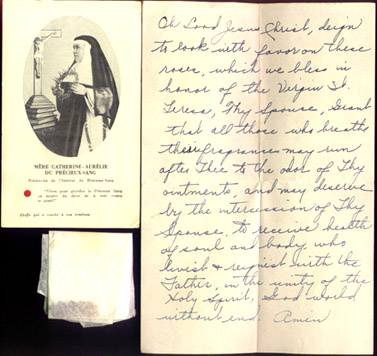 MÈRE CATHERINE-AURÉLIE
DU PRÉCIEUX-SANG
Fondatrice de l'Institut du Précieux-Sang
"Vivre pour glorifier le Précieux Sang
Oh Lord Jesus Christ, deign
to look with favor on these
roses, which we bless in
honor of the Virgin St.
Teresa, Thy Spouse, Grant
that all those who breathe
their fragrance may run
after Thee to the odor of Thy
ointments, and may deserve
by the intercession of Thy
Spouse, to receive health
of soul and body, who
livest & reignest with the
Father, in the unity of the
Holy Spirit, God world
without end. Amen